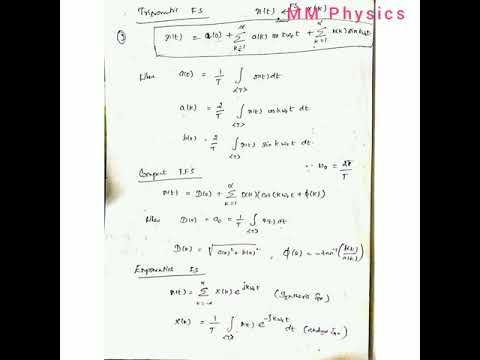 Trigonometric FS x(t) ←FS→ x(k)
MM Physics
x(t) = a(0) + ∑_{k=1}^{∞} a(k) cos kω₀t + ∑_{k=1}^{∞} b(k) sin kω₀t
where a(0) = 1/T ∫_{<T>} x(t) dt
a(k) = 2/T ∫_{<T>} x(t) cos kω₀t dt
b(k) = 2/T ∫_{<T>} x(t) sin kω₀t dt
∵ ω₀ = 2π/T
Compact T.F.S
x(t) = D(0) + ∑_{k=1}^{∞} D(k) cos(kω₀t + ϕ(k))
where D(0) = a₀ = 1/T ∫_{<T>} x(t) dt
D(k) = √(a(k)² + b(k)²) , ϕ(k) = -tan⁻¹(b(k)/a(k))
Exponential FS
x(t) = ∑_{k=-∞}^{∞} X(k) e^{jkω₀t} (Synthesis Eqn)
X(k) = 1/T ∫_{<T>} x(t) e^{-jkω₀t} dt (analysis Eqn)